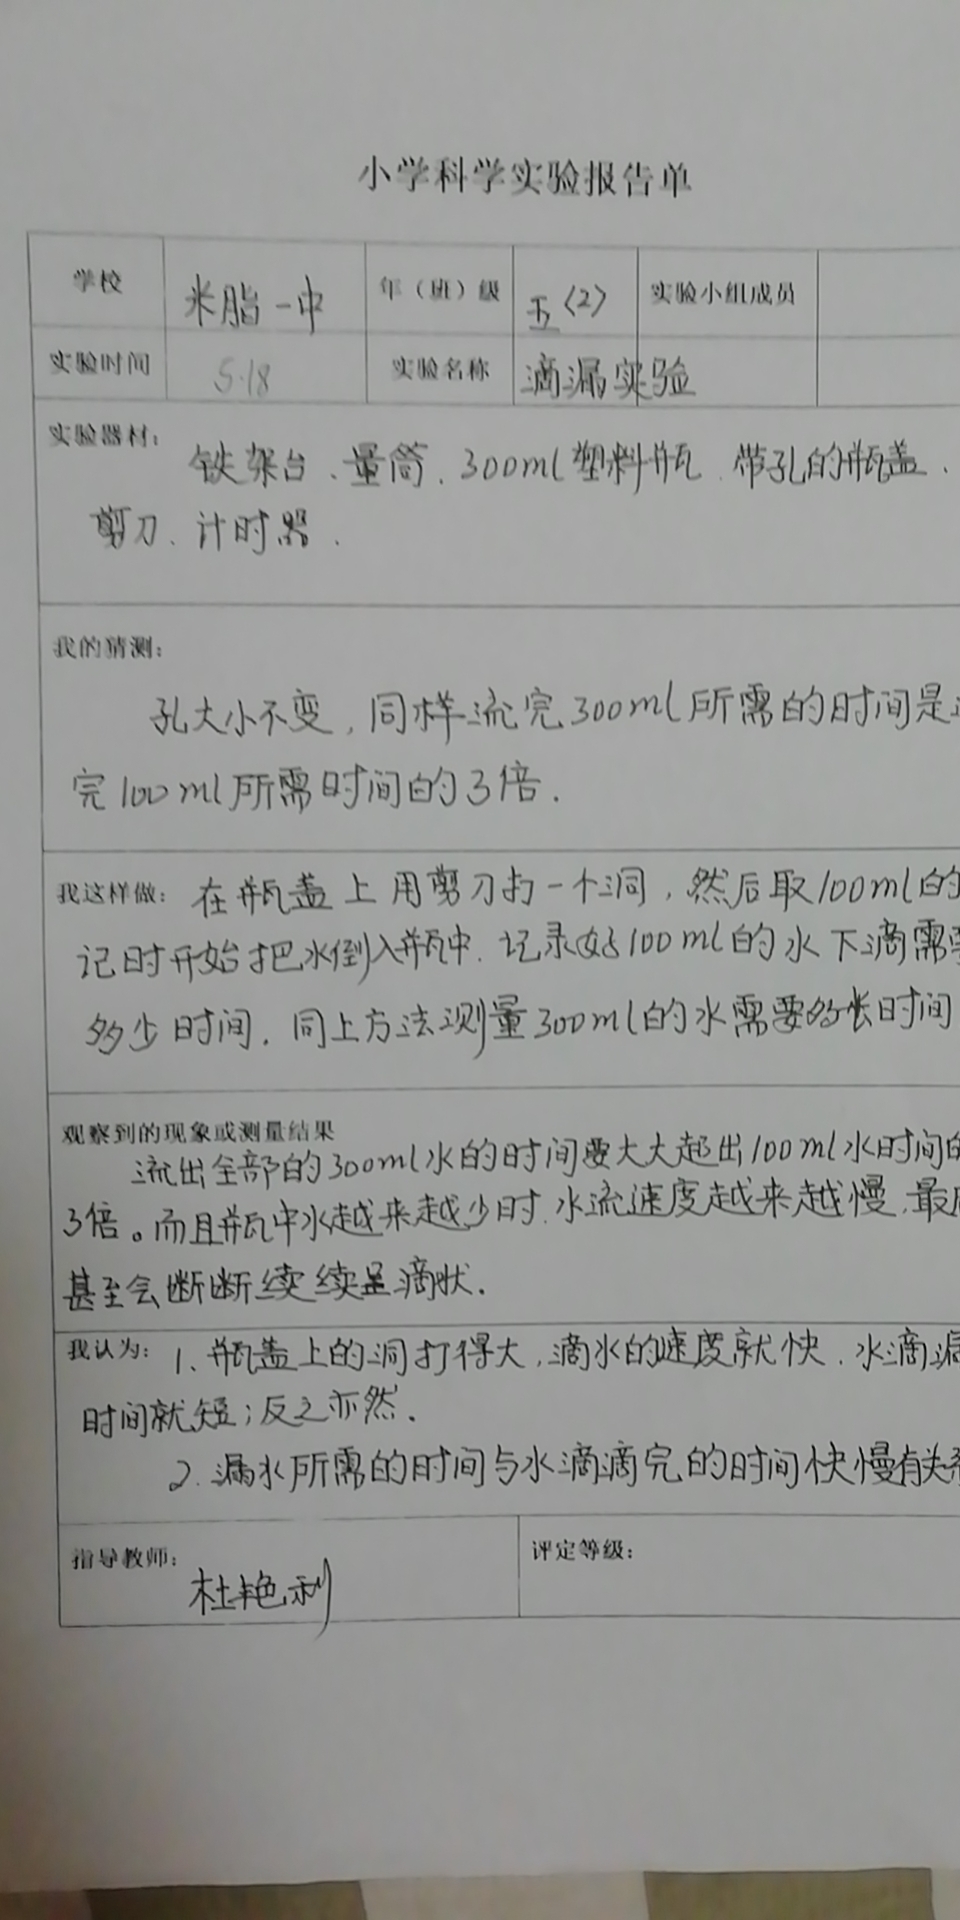 小学科学实验报告单
学校 米脂一中 年（班）级 五〈2〉 实验小组成员
实验时间 5.18 实验名称 滴漏实验
实验器材：铁架台、量筒、300ml塑料瓶、带孔的瓶盖、
剪刀、计时器.
我的猜测：
孔大小不变，同样流完300ml所需的时间是
完100ml所需时间的3倍.
我这样做：在瓶盖上用剪刀打一个洞，然后取100ml的
记时开始把水倒入瓶中.记录好100ml的水下滴需
多少时间.同上方法测量300ml的水需要多长时间
观察到的现象或测量结果
流出全部的300ml水的时间要大大超出100ml水时间的
3倍。而且瓶中水越来越少时.水流速度越来越慢.最
甚至会断断续续呈滴状.
我认为：1、瓶盖上的洞打得大，滴水的速度就快.水滴漏
时间就短；反之亦然.
2.漏水所需的时间与水滴滴完的时间快慢有关
指导教师：杜艳利 评定等级：